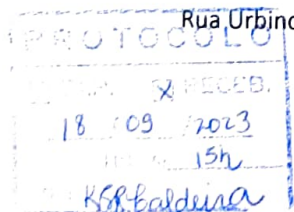 Rua Urbino
PROTOCOLO
X RECEB.
18 09 2023
15h
KSRCaldeira